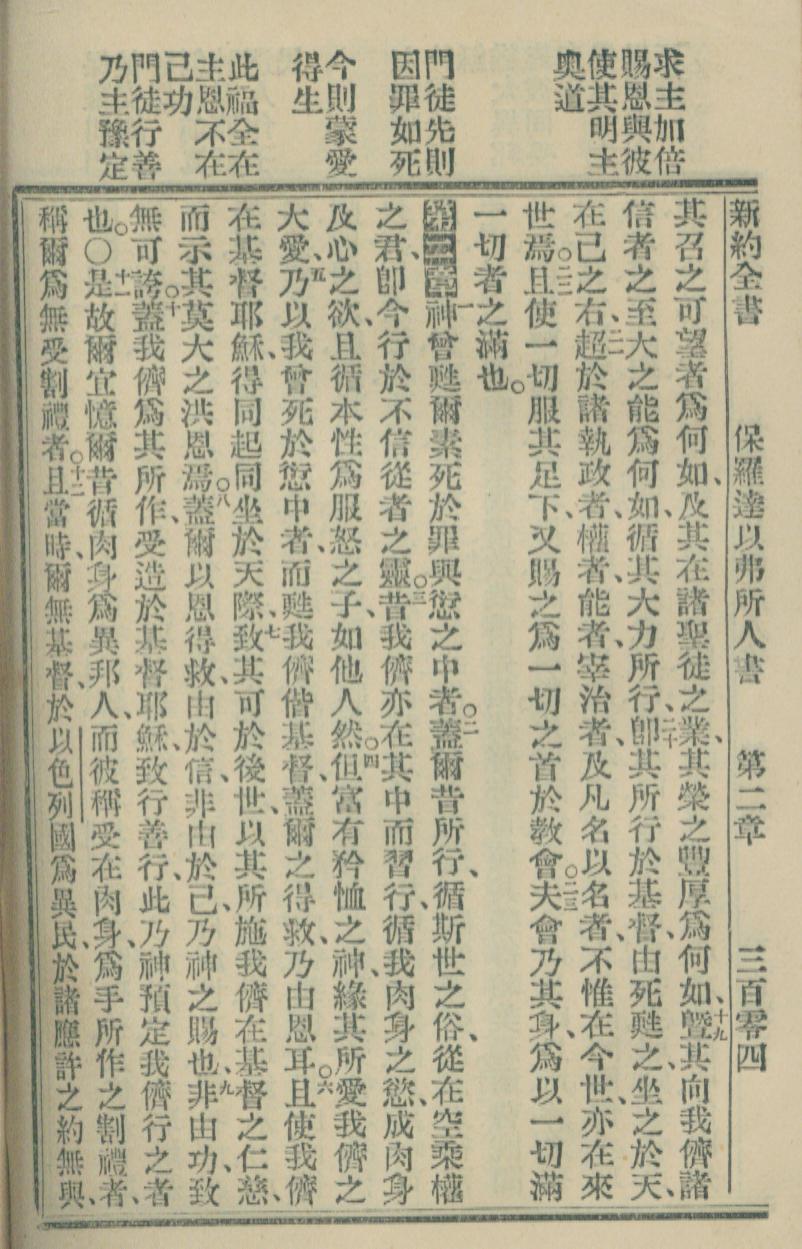 求主加倍
賜恩與彼
使其明主
奧道
門徒先則
因罪如死
今則蒙愛
得生
此福全在
主恩不在
己功
門徒行善
乃主豫定
新約全書 保羅達以弗所人書 第二章 三百零四
其召之可望者爲何如、及其在諸聖徒之業、其榮之豐厚爲何如、十九曁其向我儕諸
信者之至大之能爲何如、循其大力所行、二十卽其所行於基督、由死甦之、坐之於天、
在己之右、二一超於諸執政者、權者、能者、宰治者、及凡名以名者、不惟在今世、亦在來
世焉。二二且使一切服其足下、又賜之爲一切之首於教會。二三夫會乃其身、爲以一切滿
一切者之滿也。
第二章一神曾甦爾素死於罪與愆之中者。二蓋爾昔所行、循斯世之俗、從在空乘權
之君、卽今行於不信從者之靈。三昔我儕亦在其中而習行、循我肉身之慾、成肉身
及心之欲、且循本性爲服怒之子、如他人然。四但富有矜恤之神、緣其所愛我儕之
大愛、五乃以我曾死於愆中者、而甦我儕偕基督、蓋爾之得救、乃由恩耳。六且使我儕
在基督耶穌、得同起同坐於天際、七致其可於後世、以其所施我儕在基督之仁慈、
而示其莫大之洪恩焉。八蓋爾以恩得救、由於信、非由於己、乃神之賜也、九非由功、致
無可誇。十蓋我儕爲其所作、受造於基督耶穌、致行善行、此乃神預定我儕行之者
也。〇十一是故爾宜憶爾昔循肉身爲異邦人、而彼稱受在肉身、爲手所作之割禮者、
稱爾爲無受割禮者。十二且當時、爾無基督、於以色列國爲異民、於諸應許之約無與、